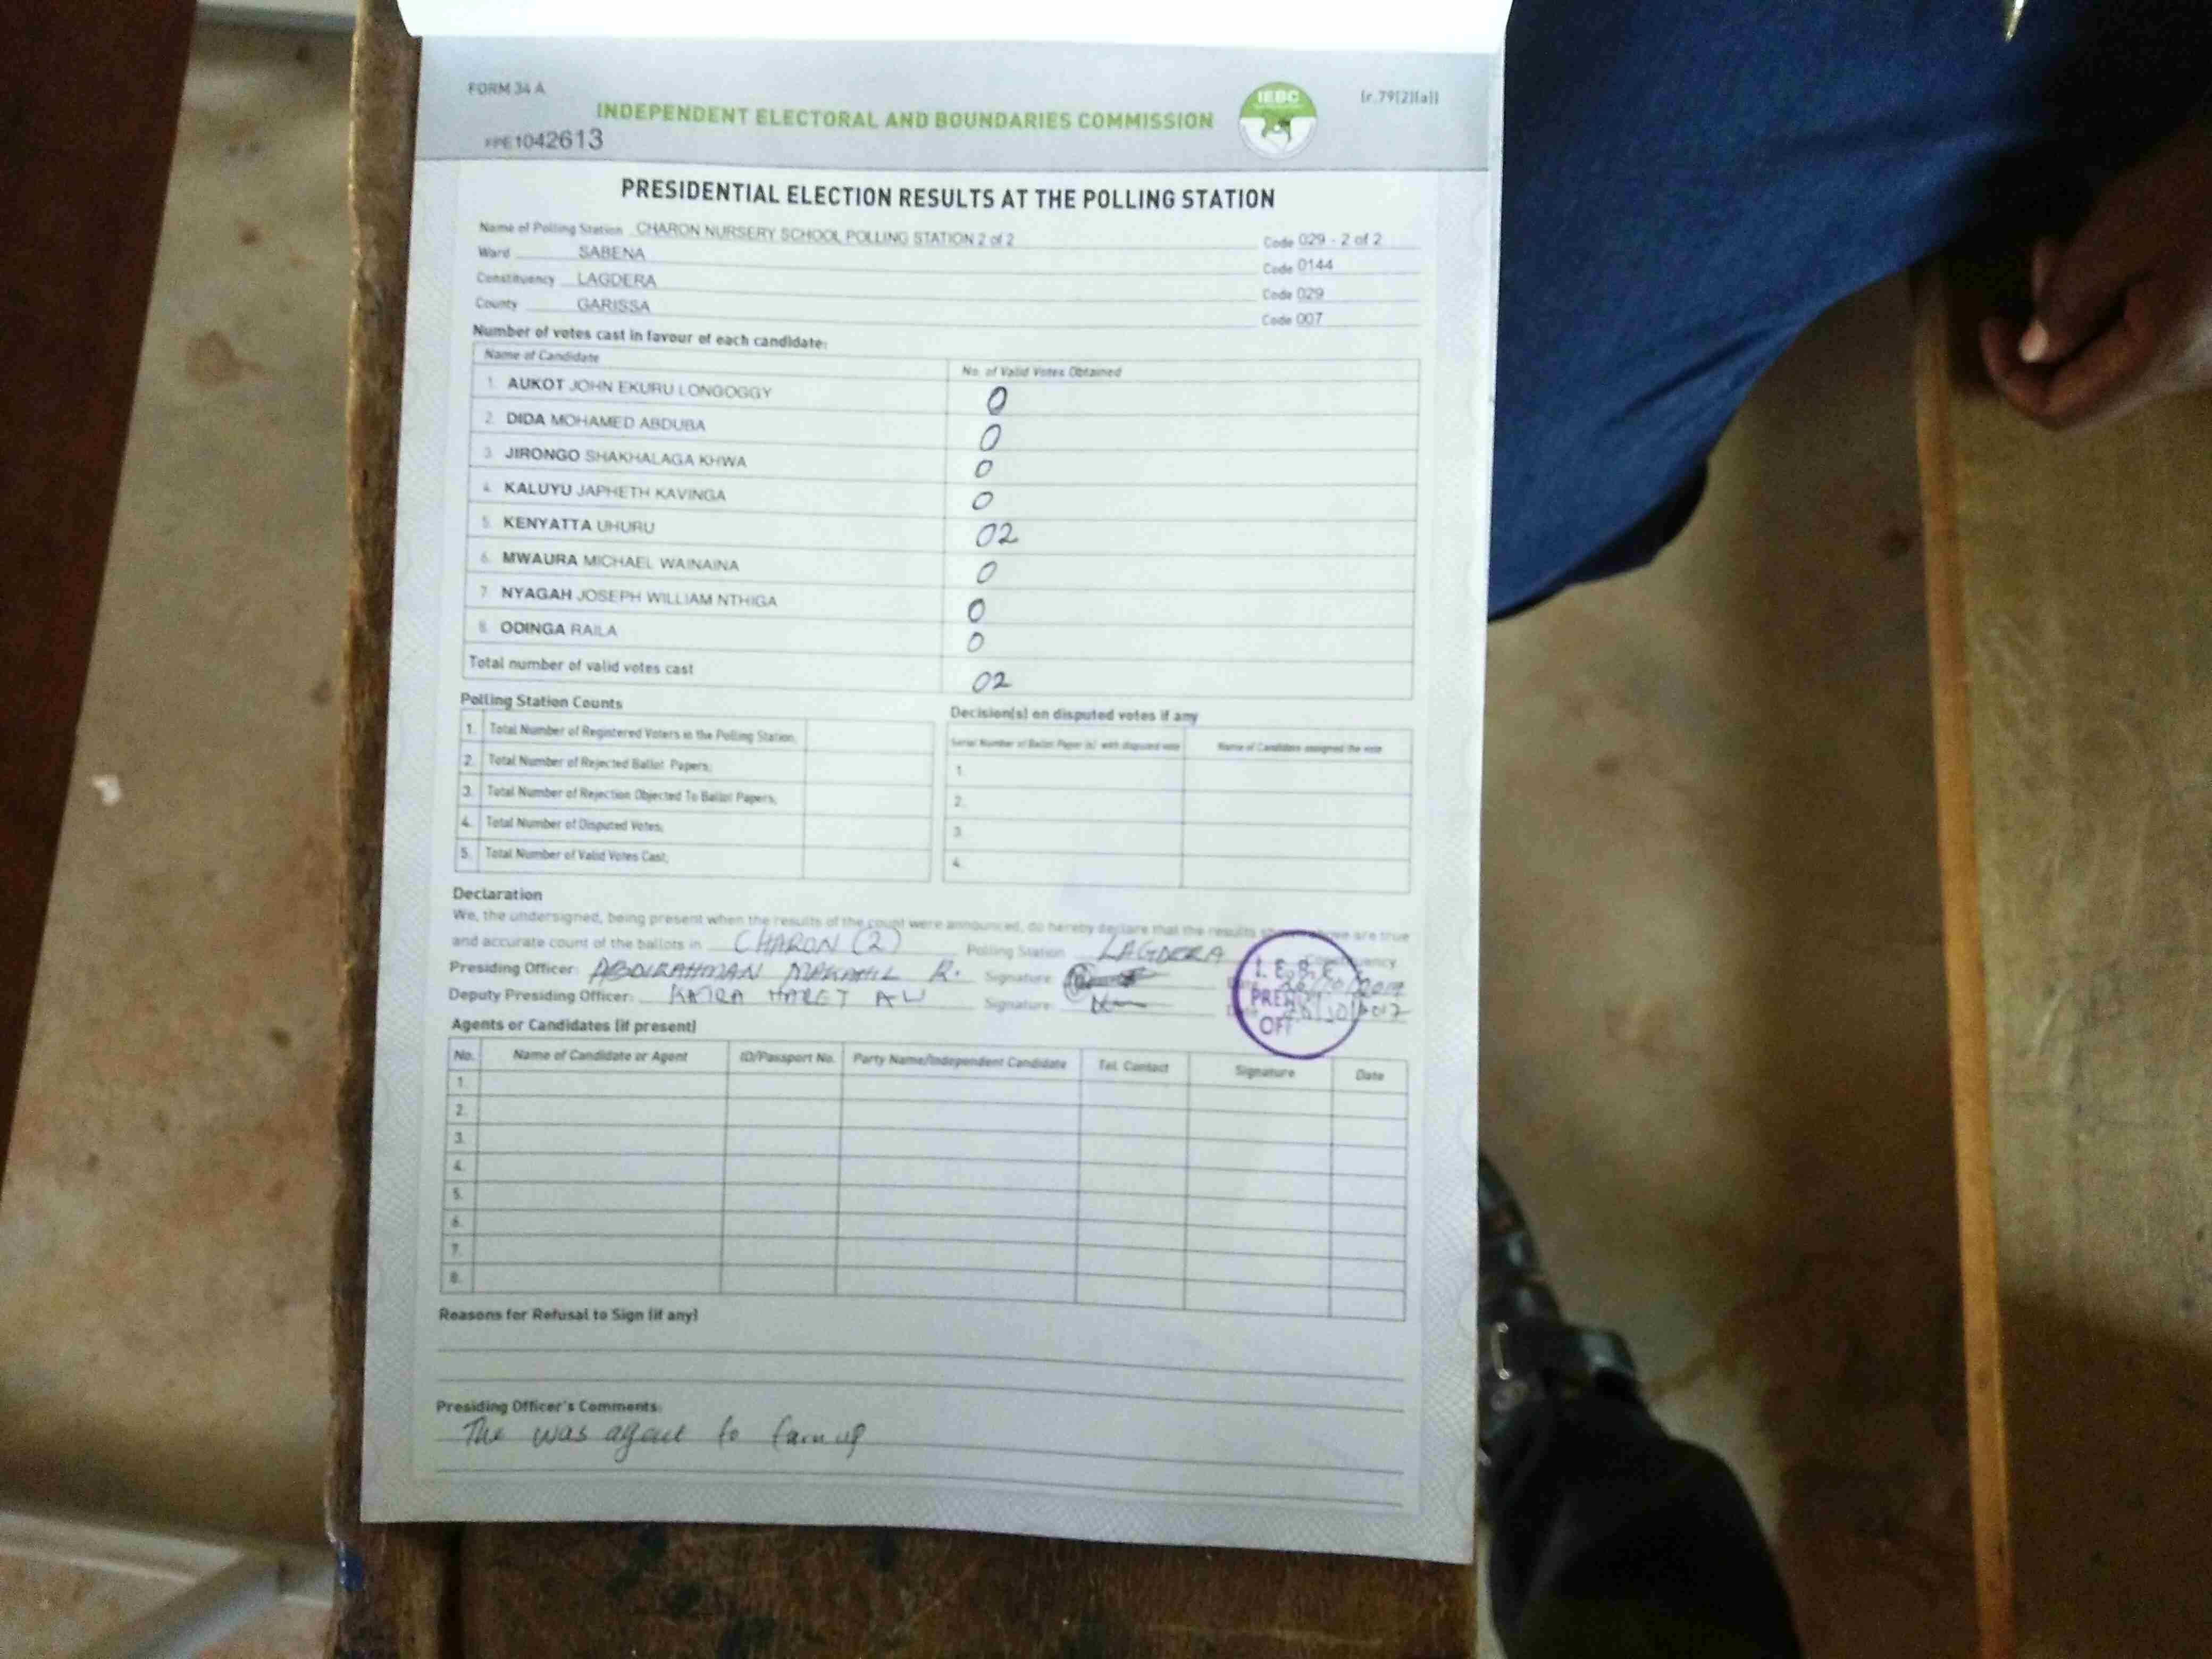 FORM 34 A
INDEPENDENT ELECTORAL AND BOUNDARIES COMMISSION
IEBC
(r.79(2)(a))
FPE1042613
PRESIDENTIAL ELECTION RESULTS AT THE POLLING STATION
Name of Polling Station CHARON NURSERY SCHOOL POLLING STATION 2 of 2 Code 029 - 2 of 2
Ward SABENA Code 0144
Constituency LAGDERA Code 029
County GARISSA Code 007
Number of votes cast in favour of each candidate:
Name of Candidate No. of Valid Votes Obtained
1. AUKOT JOHN EKURU LONGOGGY 0
2. DIDA MOHAMED ABDUBA 0
3. JIRONGO SHAKHALAGA KHWA 0
4. KALUYU JAPHETH KAVINGA 0
5. KENYATTA UHURU 02
6. MWAURA MICHAEL WAINAINA 0
7. NYAGAH JOSEPH WILLIAM NTHIGA 0
8. ODINGA RAILA 0
Total number of valid votes cast 02
Polling Station Counts
1. Total Number of Registered Voters in the Polling Station;
2. Total Number of Rejected Ballot Papers;
3. Total Number of Rejection Objected To Ballot Papers;
4. Total Number of Disputed Votes;
5. Total Number of Valid Votes Cast;
Decision(s) on disputed votes if any
Serial Number of Ballot Paper (s) with disputed vote Name of Candidate assigned the vote
1.
2.
3.
4.
Declaration
We, the undersigned, being present when the results of the count were announced, do hereby declare that the results shown above are true
and accurate count of the ballots in CHARON (2) Polling Station LAGDERA Constituency
Presiding Officer: ABDIRAHMAN R. Signature Date 26/10/2017
Deputy Presiding Officer: Signature Date 26/10/2017
I.E.B.C
Agents or Candidates (if present)
No. Name of Candidate or Agent ID/Passport No. Party Name/Independent Candidate Tel. Contact Signature Date
1.
2.
3.
4.
5.
6.
7.
8.
Reasons for Refusal to Sign (if any)
Presiding Officer's Comments:
The was agent to turn up